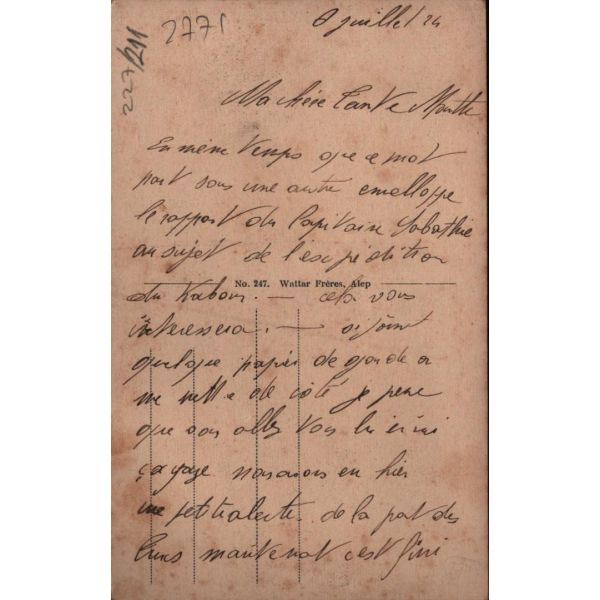 2771
227/211
8 juillet 24
Ma chère Tante Marthe
En même temps que ce mot
part sous une autre enveloppe
le rapport du Capitaine Sabathie
au sujet de l'expédition
No. 247. Wattar Frères, Alep
du — cela vous
interessera. —
quelque papier de garde a
me mettre de côté je pense
que vous allez vous
nous avons eu hier
une petite alerte de la part des
turcs maintenant c'est fini